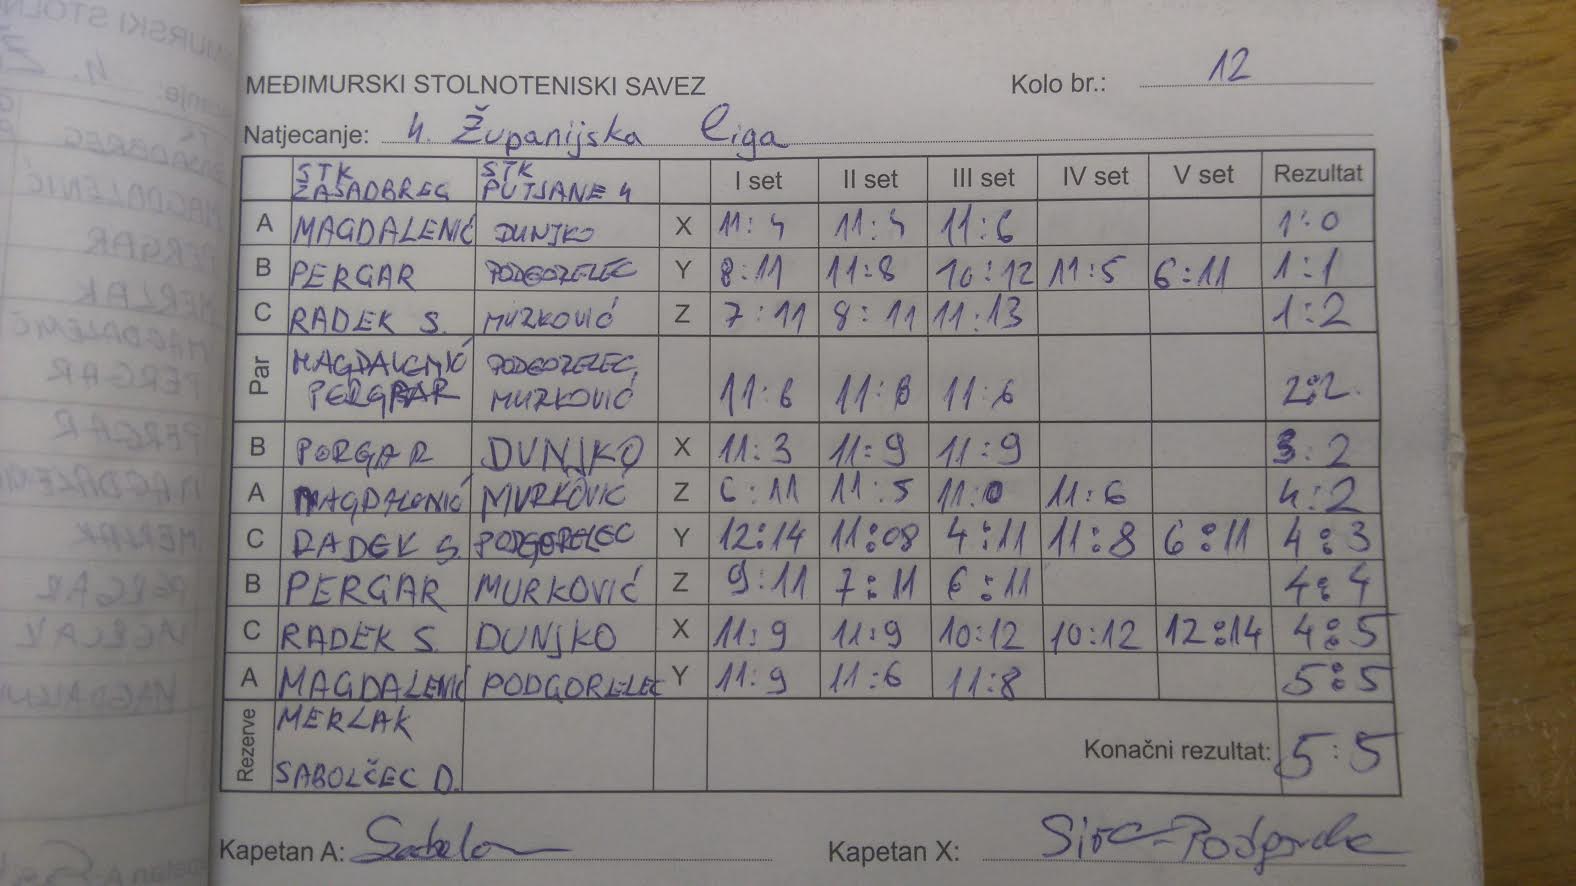 MEĐIMURSKI STOLNOTENISKI SAVEZ Kolo br.: 12
Natjecanje: 4. Županijska liga
STK ZASADBREG STK PUTJANE 4 I set II set III set IV set V set Rezultat
A MAGDALENIĆ DUNJKO X 11:4 11:4 11:6 1:0
B PERGAR PODGORELEC Y 8:11 11:8 10:12 11:5 6:11 1:1
C RADEK S. MURKOVIĆ Z 7:11 8:11 11:13 1:2
Par MAGDALENIĆ PERGAR PODGORELEC, MURKOVIĆ 11:6 11:8 11:6 2:2
B PERGAR DUNJKO X 11:3 11:9 11:9 3:2
A MAGDALENIĆ MURKOVIĆ Z 6:11 11:5 11:0 11:6 4:2
C RADEK S. PODGORELEC Y 12:14 11:08 4:11 11:8 6:11 4:3
B PERGAR MURKOVIĆ Z 9:11 7:11 6:11 4:4
C RADEK S. DUNJKO X 11:9 11:9 10:12 10:12 12:14 4:5
A MAGDALENIĆ PODGORELEC Y 11:9 11:6 11:8 5:5
Rezerve MERLAK
SABOLČEC D. Konačni rezultat: 5:5
Kapetan A: Kapetan X: